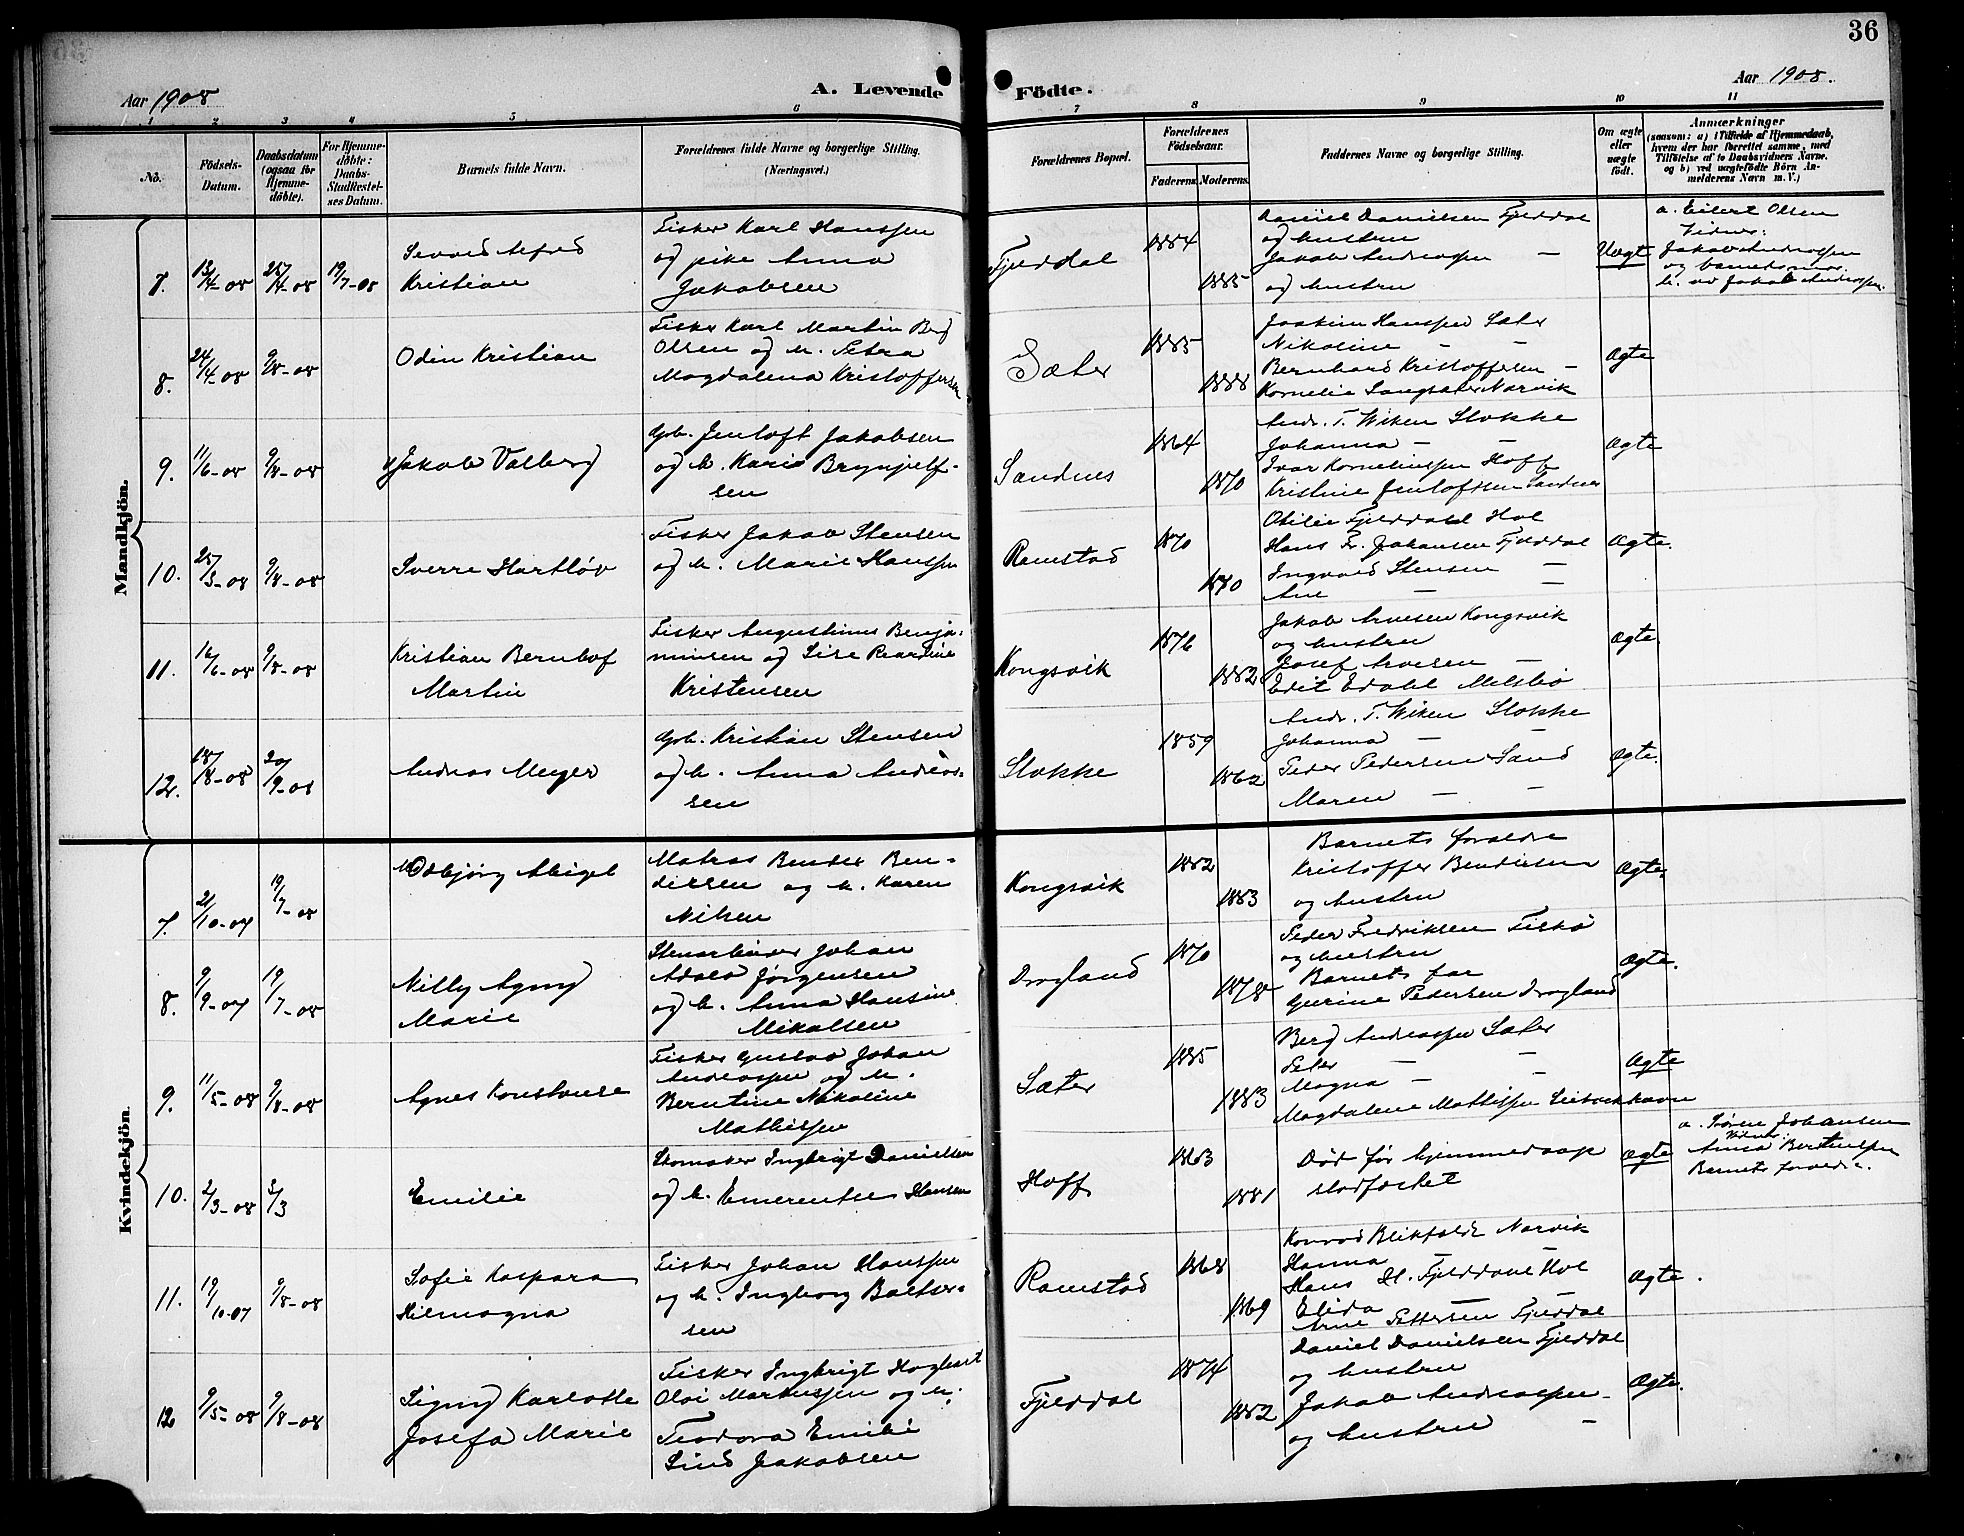 36
Aar 1908
A. Levende
Födte.
Aar 1908.
1 2 3 4 5 6 7 8 9 10 11
No.
Födsels-
Datum.
Daabsdatum
(ogsaa for
Hjemme-
döbte).
For Hjemme-
döbte:
Daabs-
Stadfæstel-
ses Datum.
Barnets fulde Navn.
Forældrenes fulde Navne og borgerlige Stilling.
(Næringsvei.)
Forældrenes Bopæl.
Forældrenes
Födselsaar.
Faderens. Moderens.
Faddernes Navne og borgerlige Stilling.
Om ægte
eller
uægte
födt.
Anmærkninger
(saasom: a) i Tilfælde af Hjemmedaab,
hvem der har forrettet samme, med
Tilföielse af to Daabsvidners Navne.
og b) ved uægtefödte Börn An-
melderens Navn m. V.)
Mandkjön.
7.
13/4-08
25/4-08
19/7-08
Alfred
Kristian
Fisker Karl Hanssen
og pike Anna
Jakobsen
Fjelddal
1884
1885
Daniel Danielsen Fjelddal
og hustru
Jakob Andreassen —
og hustru
Uægte
a. Eilert Olsen
Vidner:
Jakob Andreassen
og barnets mor.
b. av Jakob Andreassen.
8.
24/4-08
9/8-08
Odin Kristian
Fisker Karl Martin Berg
Olsen og h. Petra
Magdalena Kristoffersen
Sæter
1885
1888
Joakim Hanssen Sæter
Nikoline — —
Bernhard Kristoffersen —
Kornelie Langsæter Narvik
Ægte
9.
11/6-08
9/8-08
Jakob Valberg
Gbr. Jentoft Jakobsen
og h. Karie Brynjulf-
sen
Sandnes
1864
1870
Andr. T. Wiken Stokke
Johanna — —
Ivar Korneliussen Hoff
Kristine Jentoftsen Sandnes
Ægte
10.
25/5-08
9/8-08
Sverre Hartløv
Fisker Jakob Stensen
og h. Marie Hanssen
Ramstad
1870
1870
Otilie Fjelddal Hol
Hans Fr. Johansen Fjelddal
Ingvald Stensen —
Ane — —
Ægte.
11.
16/6-08
9/8-08
Kristian Bernhof
Martin
Fisker Augustinus Benja-
minsen og Lise
Kristensen
Kongsvik
1876
1882
Jakob Arnesen Kongsvik
og hustru
Josef Arnesen —
Edit Edahl
Ægte.
12.
18/8-08
20/9-08
Andreas Meyer
Gbr. Kristian Stensen
og h. Anna Andreas-
sen
Stokke
1859
1862
Andr. T. Wiken Stokke
Johanna —
Peder Pedersen Sand
Maren — —
Ægte.
Kvindekjön.
7.
21/10-07
19/7-08
Odbjørg Abigel
Matros Bender Ben-
dixsen og h. Karen
Nilsen
Kongsvik
1882
1883
Barnets forældre
Kristoffer Bendixsen
og hustru
Ægte.
8.
9/9-07
19/7-08
Nilly Agny
Marie
Stenarbeider Johan
Adolo Jørgensen
og h. Anna Hansine
Mikalsen
Drogland
1870
1878
Peder Fredriksen Fiskø
og hustru
Barnets far
Gurine Pedersen Drogland
Ægte.
9.
11/5-08
9/8-08
Agnes Konstanse
Fisker Gustav Johan
Andreassen og h.
Berntine Nikoline
Mathissen
Sæter
1885
1883
Berg Andreassen Sæter
Peter — —
Magna — —
Magdalene Mathissen
Ægte
10.
2/3-08
2/3
Emilie
Skomaker Ingbrigt Danielsen
og h. Emerentse Hansen
Hoff
1863
1881
Død før hjemmedaap
stadfæstet
Ægte
a. Søren Johansen
Vidner:
Anna Berntssen
Barnets forældre.
11.
19/10-07
9/8-08
Sofie Kaspara
Hilmagna
Fisker Johan Hanssen
og h. Ingborg Balser-
sen
Ramstad
1868
1869
Konrad Blikfeldt Narvik
Hanna — —
Hans H. Fjelddal Hol
Elida — —
Arne Pettersen Fjelddal
Ægte.
12
9/5-08
9/8-08
Signy Karlotte
Josefa Marie
Fisker Ingbrigt Hogbart
Oloi Markussen og h.
Teodora Emilie
Lind Jakobsen
Fjelddal
1874
1882
Daniel Danielsen Fjelddal
og hustru
Jakob Andreassen —
og hustru —
Ægte.